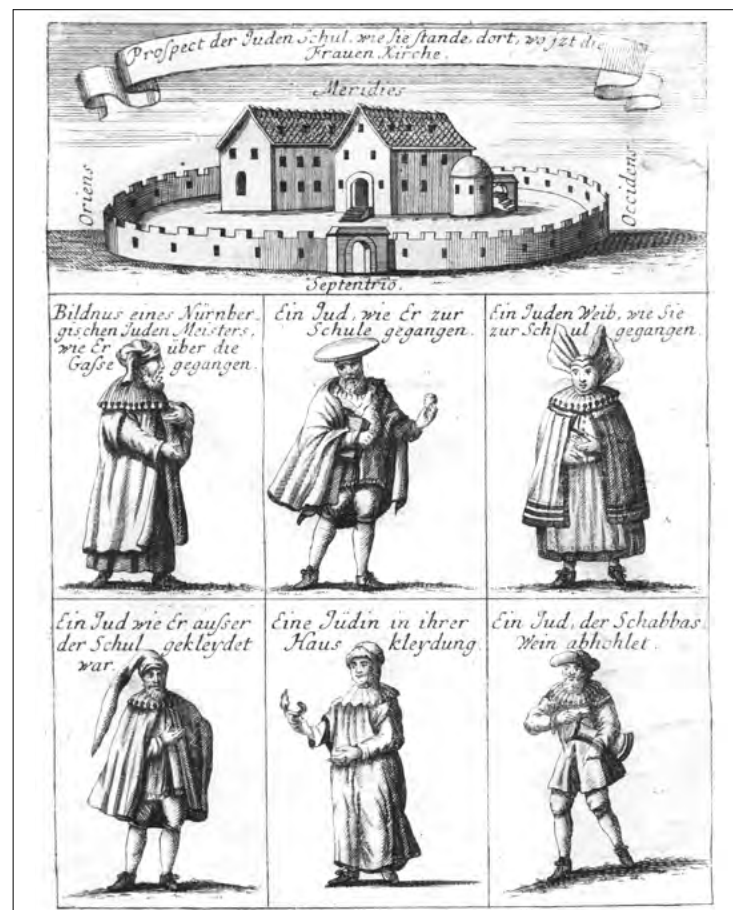 Prospect der Juden Schul, wie Sie stande, dort, wo jzt die
Frauen Kirche.
Meridies
Oriens
Occidens
Septentrio.
Bildnus eines Nürnber-
gischen Juden Meisters,
wie Er über die
Gasse gegangen.
Ein Jud, wie Er zur
Schule gegangen.
Ein Juden Weib, wie Sie
zur Schul gegangen.
Ein Jud wie Er ausser
der Schul gekleydet
war.
Eine Jüdin in ihrer
Haus kleydung.
Ein Jud, der Schabbas
Wein abhohlet.